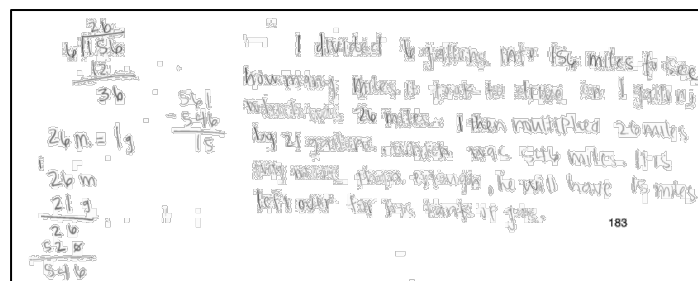 26
6 156
12
36
561
- 546
15
26 m = 1 g
1
26 m
21 g
26
52
546
I divided 6 gallons into 156 miles to see
how many miles it took to drive on 1 gallon
which is 26 miles. I then multiplied 26 miles
by 21 gallons which was 546 miles. It is
enough, he will have 15 miles
left over for his tank of gas.
183